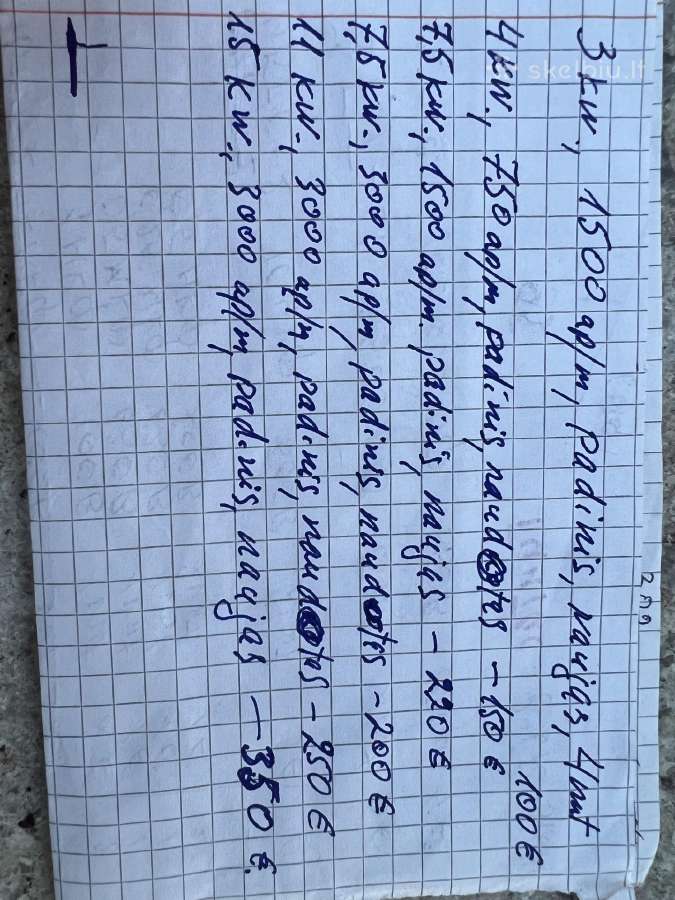 3 kw., 1500 ap/m, padinis, naujas, 4 vnt
100 €
4 kw., 750 ap/m, padinis, naudotas - 150 €
7,5 kw., 1500 ap/m. padinis, naujas - 220 €
7,5 kw., 3000 ap/m, padinis, naudotas - 200 €
11 kw., 3000 ap/m, padinis, naudotas - 250 €
15 kw., 3000 ap/m, padinis, naujas - 350 €.
skelbiu.lt